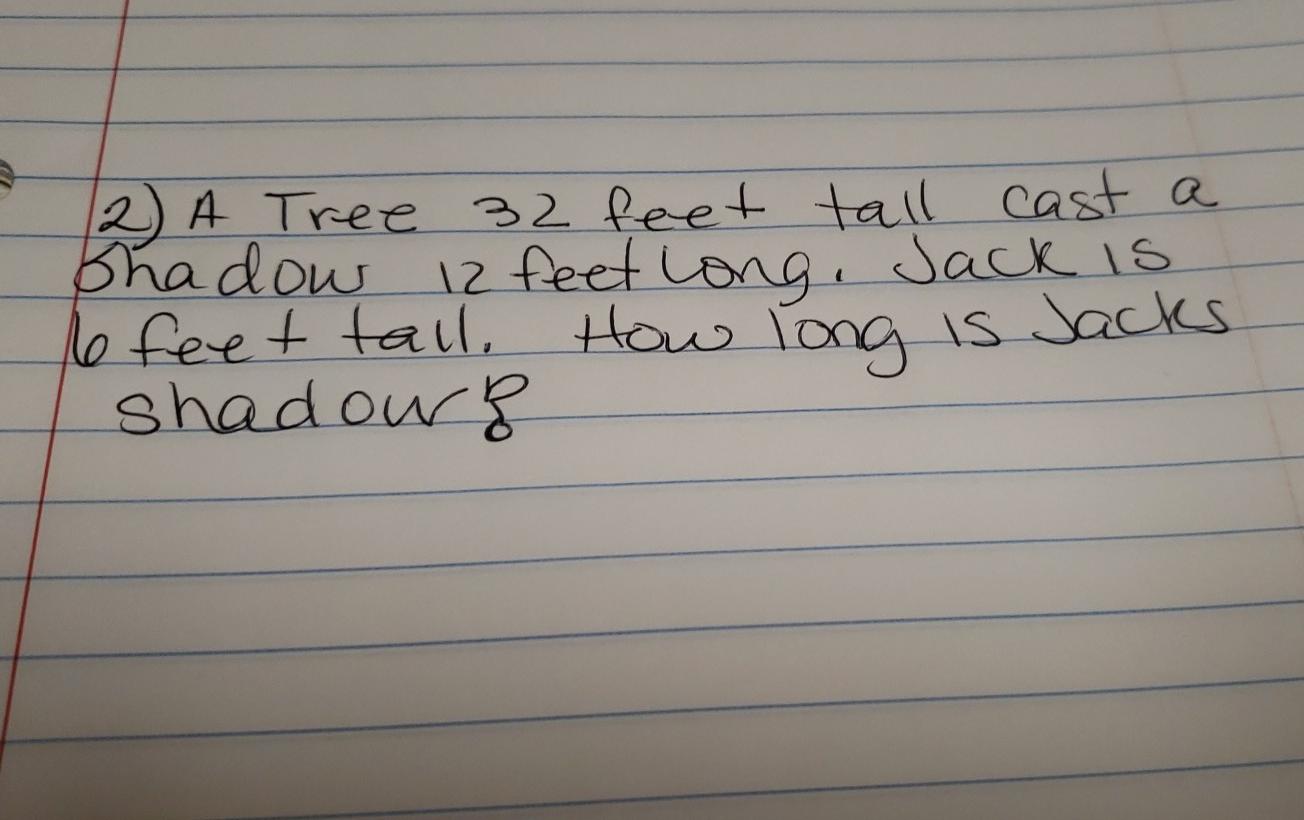 2) A Tree 32 feet tall cast a
shadow 12 feet long. Jack is
6 feet tall. How long is Jacks
shadow?